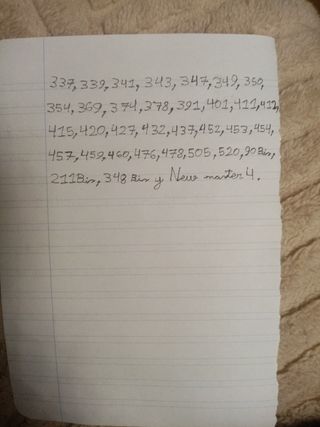 337, 339, 341, 343, 347, 349, 350,
354, 369, 374, 378, 391, 401, 411, 412,
415, 420, 427, 432, 437, 452, 453, 454,
457, 459, 460, 476, 478, 505, 520, 90 Bis,
211 Bis, 348 Bis y New master 4.